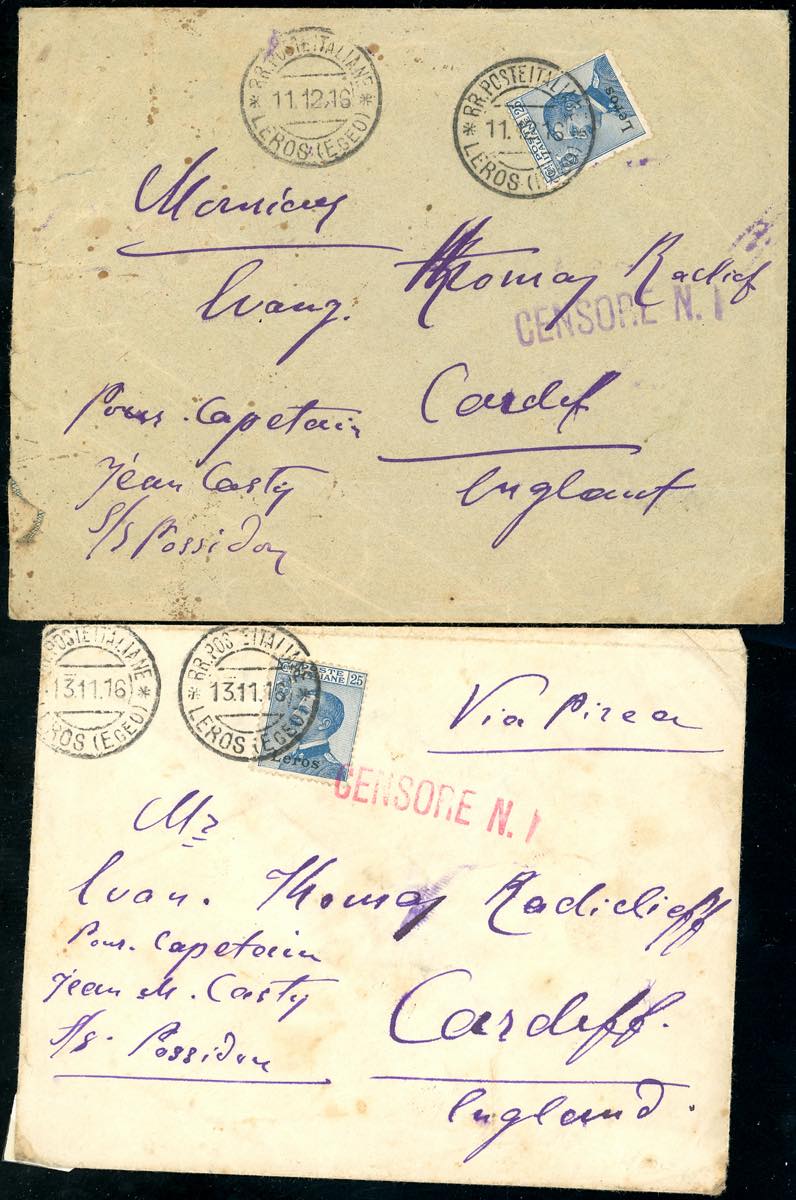 RR. POSTE ITALIANE
11.12.16
LEROS (EGEO)
RR. POSTE ITALIANE
11. 16
LEROS
POSTE
ITALIANE
25
Leros
Monsieur
Evang. Thomas Radief
CENSORE N. 1
Cardif
Englant
Pour Capetain
Jean Casty
S/s Possidon
POSTE ITALIANE
13.11.16
LEROS (EGEO)
RR. POSTE ITALIANE
13.11.16
LEROS (EGEO)
25
Leros
Via Pirea
CENSORE N. 1
Mr
Evan. Thomas Radiclieff
Pour. Capetain
Jean M. Casty
S/s. Possidon
Cardeff.
England.